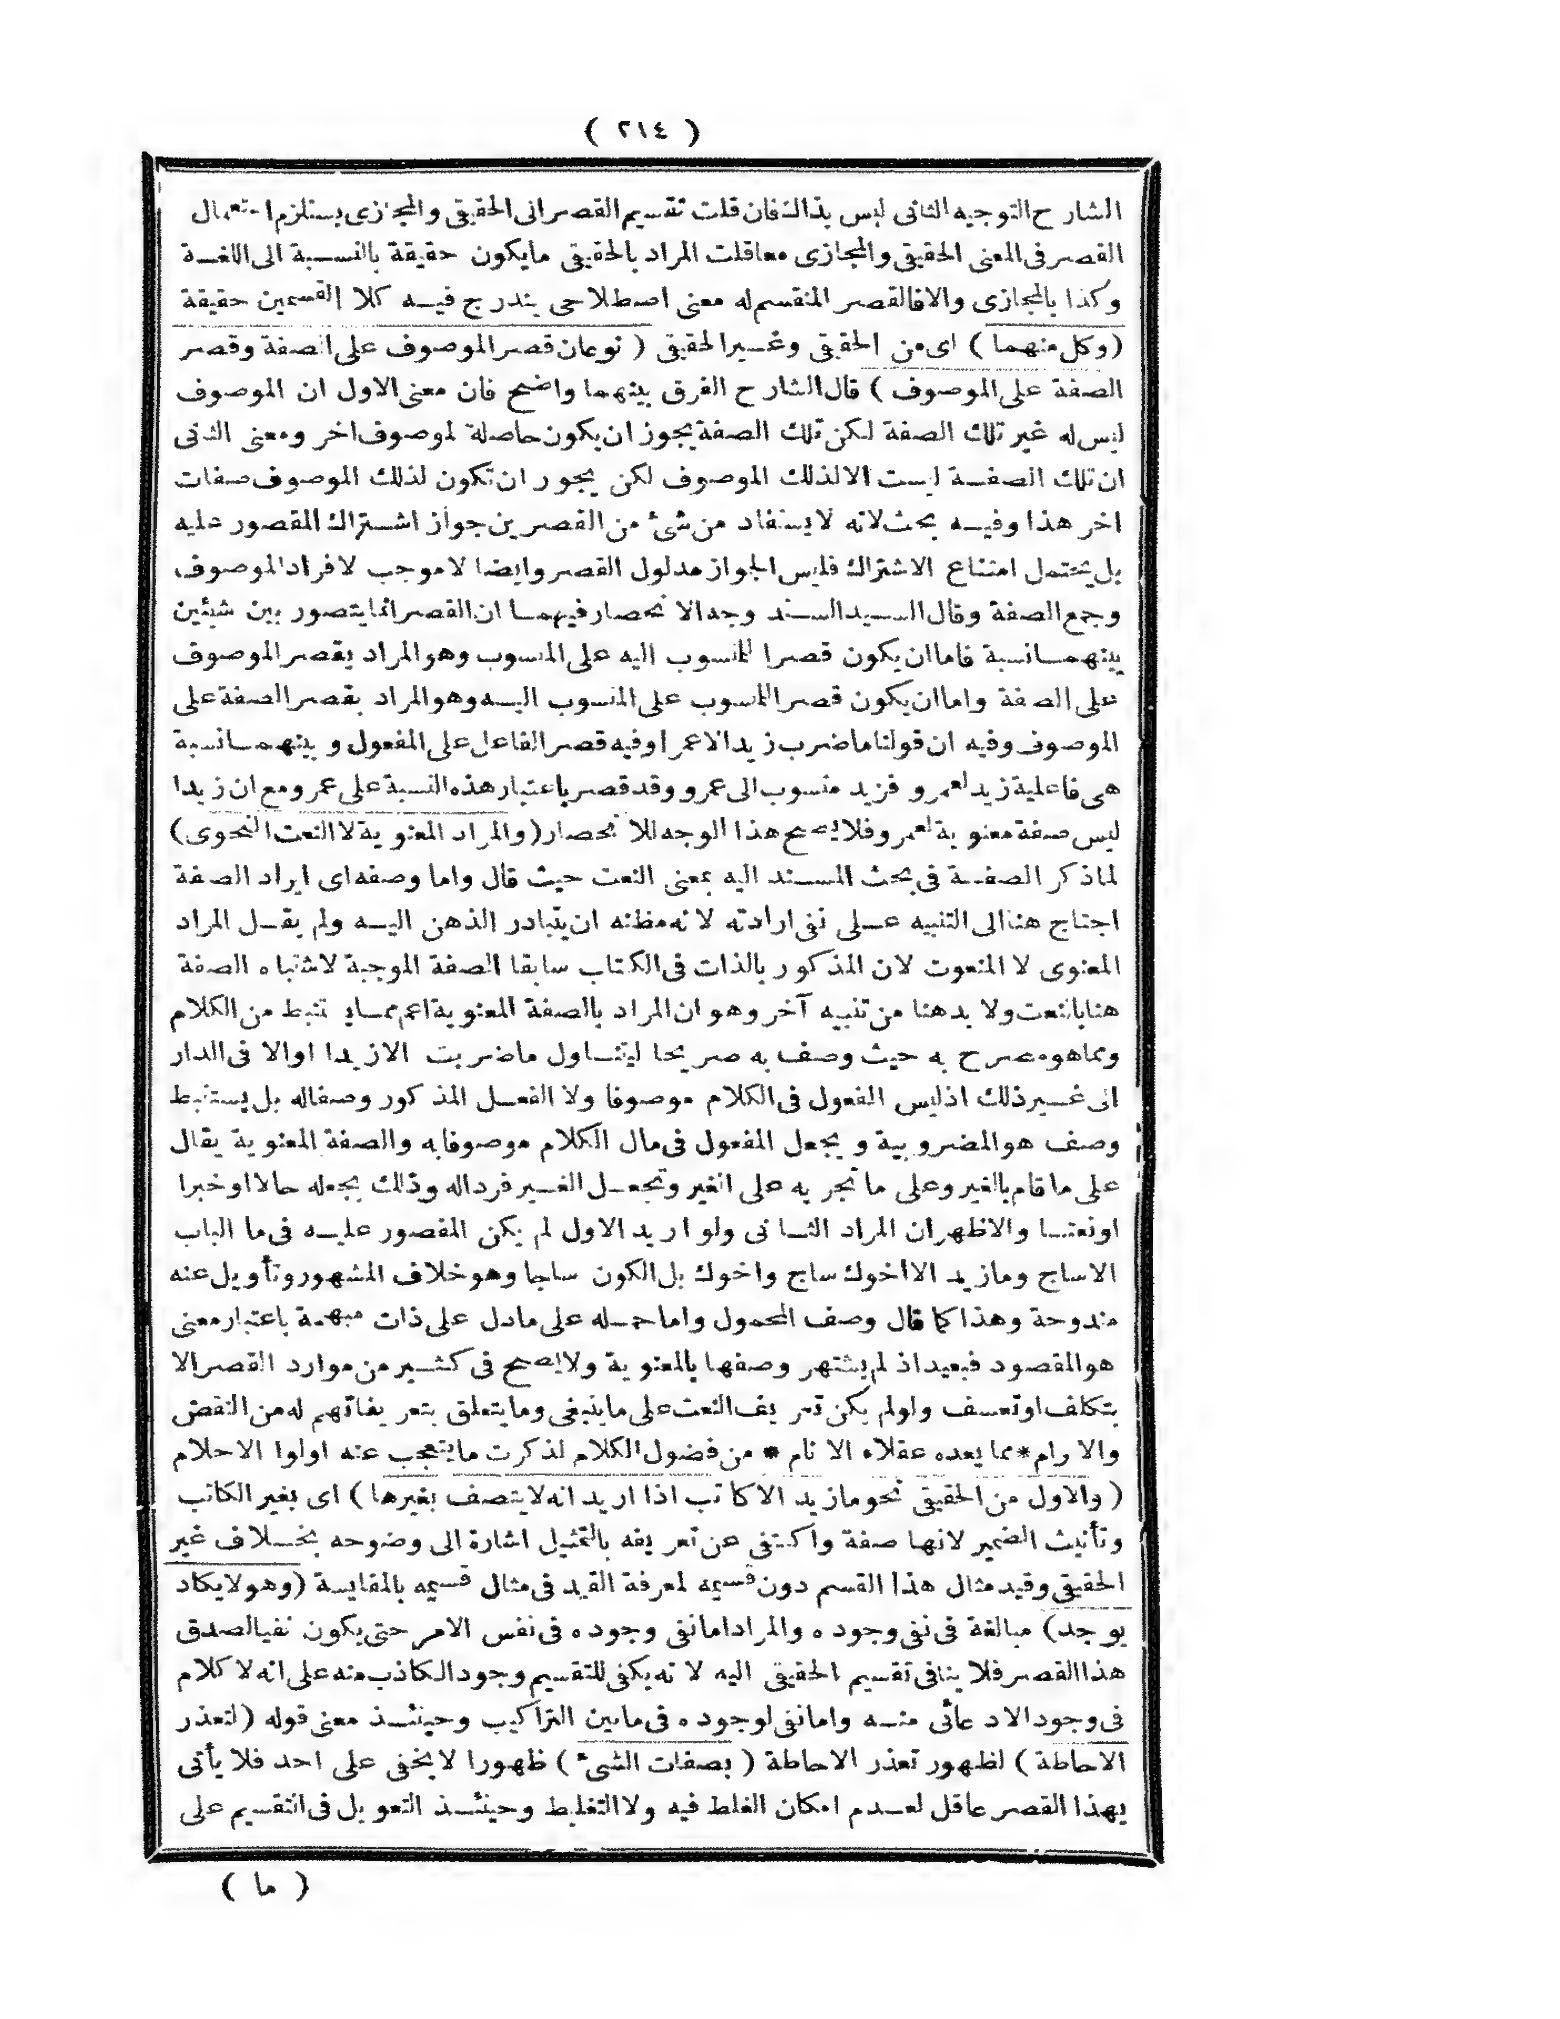 ( ٢١٤ )
الشارح التوجيه الثانى ليس بذالك فان قلت تقسيم القصر الى الحقيقى والمجازى يستلزم استعمال
القصر فى المعنى الحقيقى والمجازى معا قلت المراد بالحقيقى مايكون حقيقة بالنسبة الى اللغة
وكذا بالمجازى والا فالقصر المنقسم له معنى اصطلاحى يندرج فيه كلا القسمين حقيقة
(وكل منهما) اى من الحقيقى وغير الحقيقى ( نوعان قصر الموصوف على الصفة وقصر
الصفة على الموصوف ) قال الشارح الفرق بينهما واضح فان معنى الاول ان الموصوف
ليس له غير تلك الصفة لكن تلك الصفة يجوز ان يكون حاصلة لموصوف اخر ومعنى الثانى
ان تلك الصفة ليست الا لذلك الموصوف لكن يجوز ان تكون لذلك الموصوف صفات
اخر هذا وفيه بحث لانه لا يستفاد من شئ من القصرين جواز اشتراك المقصور عليه
بل يحتمل امتناع الاشتراك فليس الجواز مدلول القصر وايضا لا موجب لافراد الموصوف
وجمع الصفة وقال السيد السند وجه الانحصار فيهما ان القصر انما يتصور بين شيئين
بينهما نسبة فاما ان يكون قصرا للمنسوب اليه على المنسوب وهو المراد بقصر الموصوف
على الصفة واما ان يكون قصر المنسوب على المنسوب اليه وهو المراد بقصر الصفة على
الموصوف وفيه ان قولنا ما ضرب زيد الا عمرا وفيه قصر الفاعل على المفعول وبينهما نسبة
هى فاعلية زيد لعمرو فزيد منسوب الى عمرو وقد قصر باعتبار هذه النسبة على عمرو مع ان زيدا
ليس صفة معنوية لعمرو فلا يصح هذا الوجه للانحصار (والمراد المعنوية لا النعت النحوى)
لما ذكر الصفة فى بحث المسند اليه بمعنى النعت حيث قال واما وصفه اى ايراد الصفة
احتاج هنا الى التنبيه على نفى ارادته لانه مظنه ان يتبادر الذهن اليه ولم يقل المراد
المعنوى لا المنعوت لان المذكور بالذات فى الكتاب سابقا الصفة الموجبة لاشتباه الصفة
هنا بالنعت ولا بد هنا من تنبيه آخر وهو ان المراد بالصفة المعنوية اعم مما يستنبط من الكلام
ومما هو مصرح به حيث وصف به صريحا ليتناول ما ضربت الا زيدا او الا فى الدار
الى غير ذلك اذ ليس المفعول فى الكلام موصوفا ولا الفعل المذكور وصفاله بل يستنبط
وصف هو المضروبية ويجعل المفعول فى مال الكلام موصوفا به والصفة المعنوية يقال
على ما قام بالغير وعلى ما تجريه على الغير وتجعل الغير فردا له وذلك بجعله حالا او خبرا
او نعتا والاظهر ان المراد الثانى ولو اريد الاول لم يكن المقصور عليه فى ما الباب
الا ساج وما زيد الا اخوك ساج واخوك بل الكون ساجا وهو خلاف المشهور وتأويل عنه
مندوحة وهذا كما قال وصف المحمول واما حمله على مادل على ذات مبهمة باعتبار معنى
هو المقصود فبعيد اذ لم يشتهر وصفها بالمعنوية ولا يصح فى كثير من موارد القصر الا
بتكلف او تعسف ولو لم يكن تعريف النعت على ما ينبغى وما يتعلق بتعريفاتهم له من النقض
والابرام * مما يعده عقلاء الانام * من فضول الكلام لذكرت ما يتعجب عنه اولوا الاحلام
( والاول من الحقيقى نحو ما زيد الا كاتب اذا اريد انه لا يتصف بغيرها ) اى بغير الكاتب
وتأنيث الضمير لانها صفة واكتفى عن تعريفه بالتمثيل اشارة الى وضوحه بخلاف غير
الحقيقى وقيد مثال هذا القسم دون قسيمه لمعرفة القيد فى مثال قسيمه بالمقايسة (وهو لا يكاد
يوجد) مبالغة فى نفى وجوده والمراد اما نفى وجوده فى نفس الامر حتى يكون نفيا لصدق
هذا القصر فلا ينافى تقسيم الحقيقى اليه لانه يكفى للتقسيم وجود الكاذب منه على انه لا كلام
فى وجود الادعائى منه واما نفى لوجوده فى مابين التراكيب وحينئذ معنى قوله (لتعذر
الاحاطة) لظهور تعذر الاحاطة ( بصفات الشئ ) ظهورا لا يخفى على احد فلا يأتى
بهذا القصر عاقل لعدم امكان الغلط فيه ولا التغليط وحينئذ التعويل فى التقسيم على
( ما )